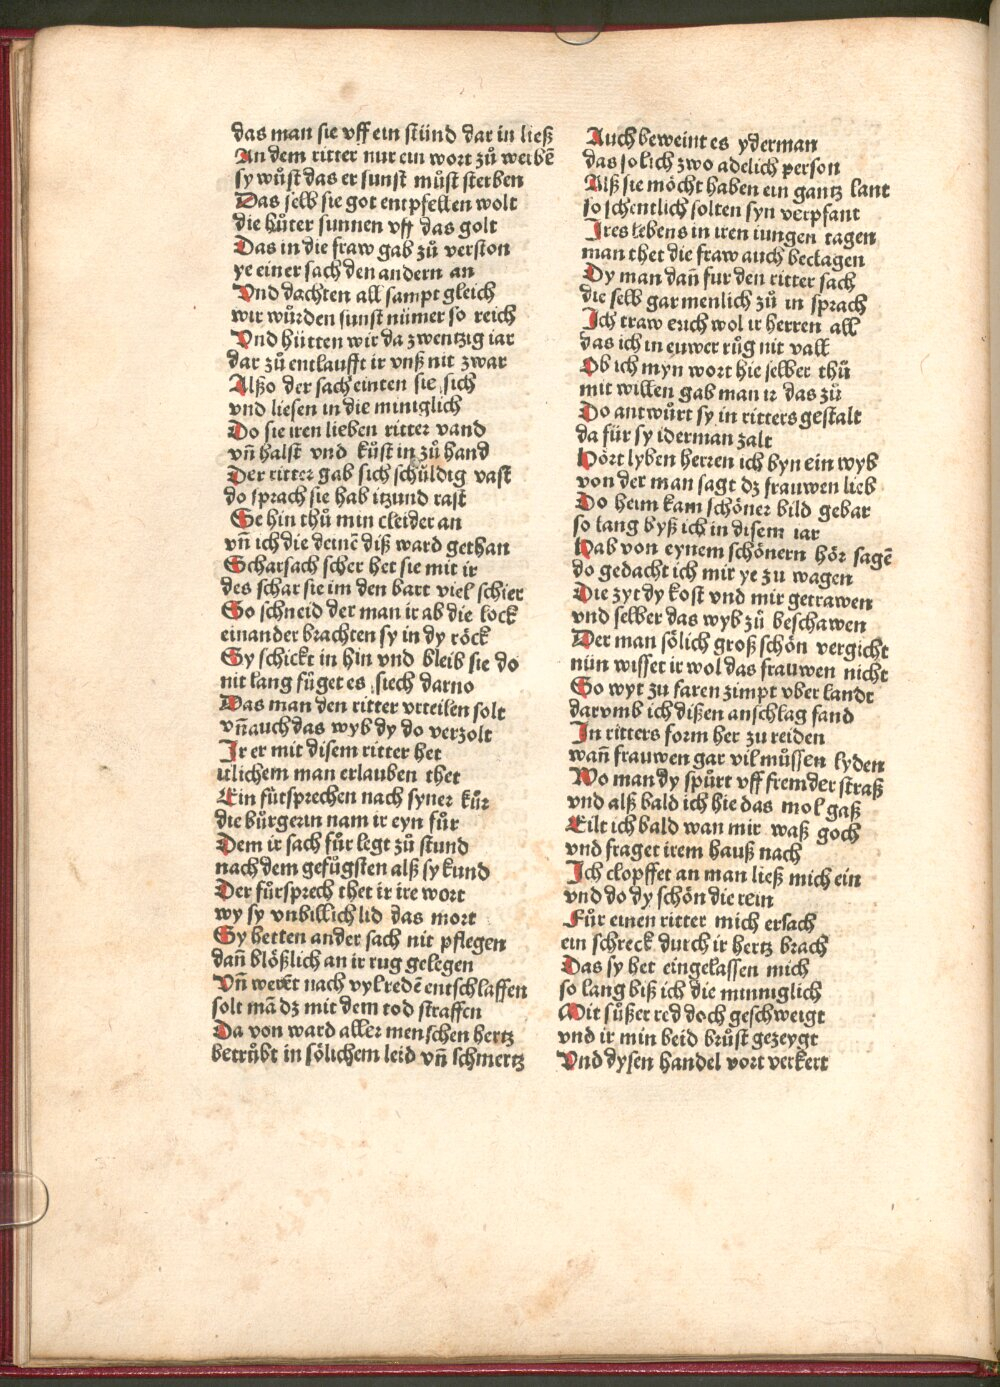 das man sie vff ein stünd dar in ließ
An dem ritter nur ein wort zů werbē
sy wůst das er sunst můst sterben
Das selb sie got entpfellen wolt
die hůter sunnen vff das golt
Das in die fraw gab zů verston
ye einer sach den andern an
Vnd dachten all sampt gleich
wir wůrden sunst nümer so reich
Vnd hütten wir da zwentzig iar
dar zů entlaufft ir vnß nit zwar
Alßo der sach einten sie sich
vnd liesen in die miniglich
Do sie iren lieben ritter vand
vn̄ halst vnd kůst in zů hand
Der ritter gab sich schüldig vast
do sprach sie hab itzund rast
Se hin thů min cleider an
vn̄ ich die deinē diß ward gethan
Scharsach scher het sie mit ir
des schar sie im den bart viel schier
So schneid der man ir ab die lock
einander brachten sy in dy röck
Sy schickt in hin vnd bleib sie do
nit lang füget es siech darno
Das man den ritter vrteilen solt
vn̄ auch das wyb dy do verzolt
Ir er mit disem ritter het
itlichem man erlauben thet
Ein fürsprechen nach syner kůr
die bůrgerin nam ir eyn fůr
Dem ir sach fůr legt zů stund
nach dem gefügsten alß sy kund
Der fůrsprech thet ir ire wort
wy sy vnbillich lid das mort
Sy hetten ander sach nit pflegen
dan̄ blößlich an ir rug gelegen
Vn̄ werēt nach vyl redē entschlaffen
solt mā dz mit dem tod straffen
Da von ward aller menschen hertz
betrůbt in sölichem leid vn̄ schmertz
Auch beweint es yderman
das solich zwo adelich person
Alß sie möcht haben ein gantz lant
so schentlich solten syn verpfant
Ires lebens in iren iungen tagen
man thet die fraw auch beclagen
Dy man dan̄ fur den ritter sach
die selb gar menlich zů in sprach
Ich traw euch wol ir herren all
das ich in euwer růg nit vall
Ob ich myn wort hie selber thů
mit willen gab man ir das zů
Do antwůrt sy in ritters gestalt
da für sy iderman zalt
Hört lyben herren ich byn ein wyb
von der man sagt dz frauwen lieb
Do heim kam schöner bild gebar
so lang byß ich in disem iar
Hab von eynem schönern hör sagē
do gedacht ich mir ye zu wagen
Die zyt dy kost vnd mir getrawen
vnd selber das wyb zů beschawen
Der man sölich groß schön vergicht
nün wisset ir wol das frauwen nicht
So wyt zu faren zimpt vber landt
darvmb ich dißen anschlag fand
In ritters form her zu reiden
wan̄ frauwen gar vil můssen lyden
Wo man dy spůrt vff fremder straß
vnd alß bald ich hie das mol gaß
Eilt ich bald wan mir waß goch
vnd fraget irem hauß nach
Ich clopffet an man ließ mich ein
vnd do dy schön die rein
Für einen ritter mich ersach
ein schreck durch ir hertz brach
Das sy het eingelassen mich
so lang biß ich die minniglich
Mit sůßer red doch geschweigt
vnd ir min beid brůst gezeygt
Vnd dysen handel vort verkert